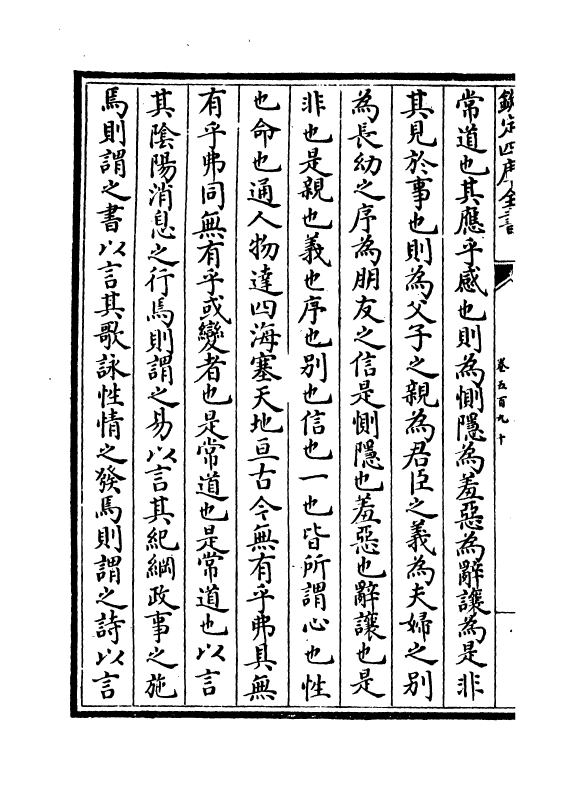 欽定四庫全書
卷五百九十
常道也其應乎感也則為惻隱為羞惡為辭讓為是非
其見於事也則為父子之親為君臣之義為夫婦之別
為長幼之序為朋友之信是惻隱也羞惡也辭讓也是
非也是親也義也序也別也信也一也皆所謂心也性
也命也通人物達四海塞天地亘古今無有乎弗具無
有乎弗同無有乎或變者也是常道也是常道也以言
其陰陽消息之行焉則謂之易以言其紀綱政事之施
焉則謂之書以言其歌詠性情之發焉則謂之詩以言